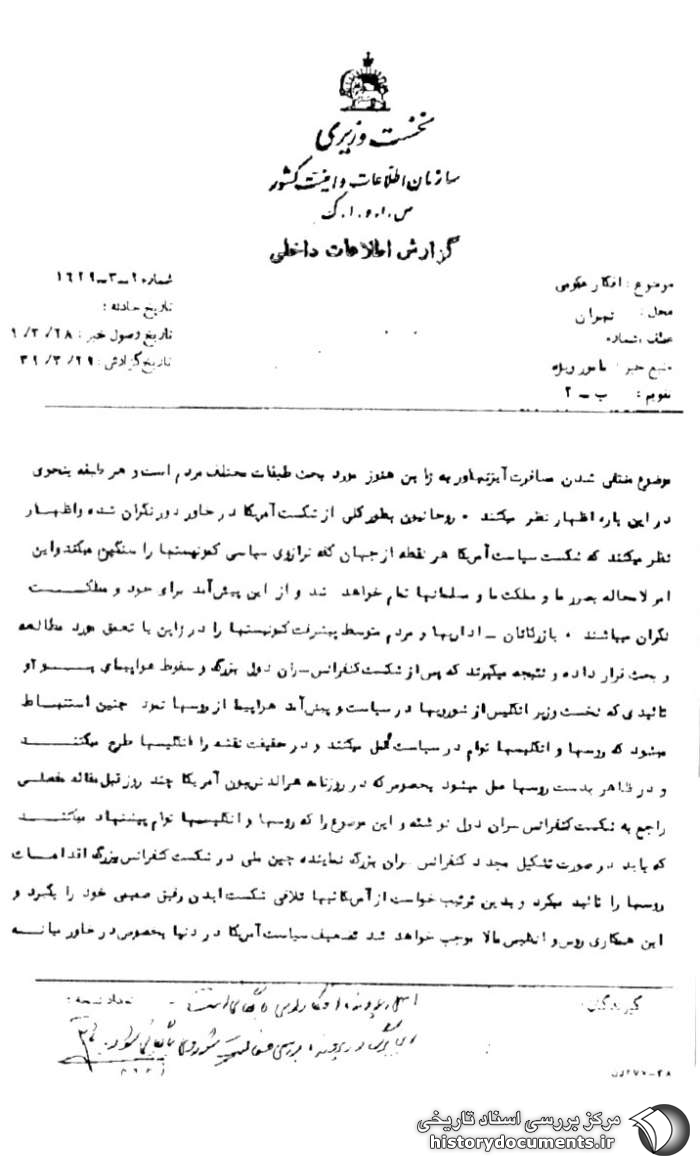 نخست وزیری
سازمان اطلاعات و امنیت کشور
س.ا.و.ا.ک
گزارش اطلاعات داخلی
موضوع : افکار عمومی
محل : تهران
عطف بشماره
منبع خبر : مامور ویژه
تقویم : ب - ۲
شماره ۲ - ۳ - ۱۶۲۹
تاریخ حادثه :
تاریخ وصول خبر : ۲۸ /۳ /
تاریخ گزارش : ۲۹ /۳ /۳۹
موضوع منتفی شدن مسافرت آیزنهاور به ژاپن هنوز مورد بحث طبقات مختلف مردم است و هر طبقه بنحوی
در این باره اظهار نظر میکنند . روحانیون بطور کلی از شکست آمریکا در خاور دور نگران شده و اظهار
نظر میکنند که شکست سیاست آمریکا هر نقطه از جهان کفه ترازوی سیاسی کمونیستها را سنگین میکند و این
امر لامحاله بضرر ما و مملکت ما و مسلمانها تمام خواهد شد و از این پیش آمد برای خود و مملکت
نگران میباشند . بازرگانان - اداریها و مردم متوسط پیشرفت کمونیستها را در ژاپن با تعمق مورد مطالعه
و بحث قرار داده و نتیجه میگیرند که پس از شکست کنفرانس سران دول بزرگ و سقوط هواپیمای یو ۲ و
تائیدی که نخست وزیر انگلیس از شورویها در سیاست و پیش آمد هواپیما از روسها نمود چنین استنباط
میشود که روسها و انگلیسها توام در سیاست عمل میکنند و در حقیقت نقشه را انگلیسها طرح میکنند
و در ظاهر بدست روسها عمل میشود بخصوص که در روزنامه هرالد تریبون آمریکا چند روز قبل مقاله مفصلی
راجع به شکست کنفرانس سران دول نوشته و این موضوع را که روسها و انگلیسها توام پیشنهاد میکنند
که باید در صورت تشکیل مجدد کنفرانس سران بزرگ نماینده چین ملی در شکست کنفرانس بزرگ اقدامات
روسها را تائید میکرد و بدین ترتیب خواست از آمریکائیها تلافی شکست ایدن رفیق صمیمی خود را بگیرد و
این همکاری روس و انگلیس مالا موجب خواهد شد تضعیف سیاست آمریکا در دنیا بخصوص در خاور میانه
گیرندگان :
تعداد نسخه :
در پرونده بررسی
۳۸-۲۷۰
مرکز بررسی اسناد تاریخی
historydocuments.ir